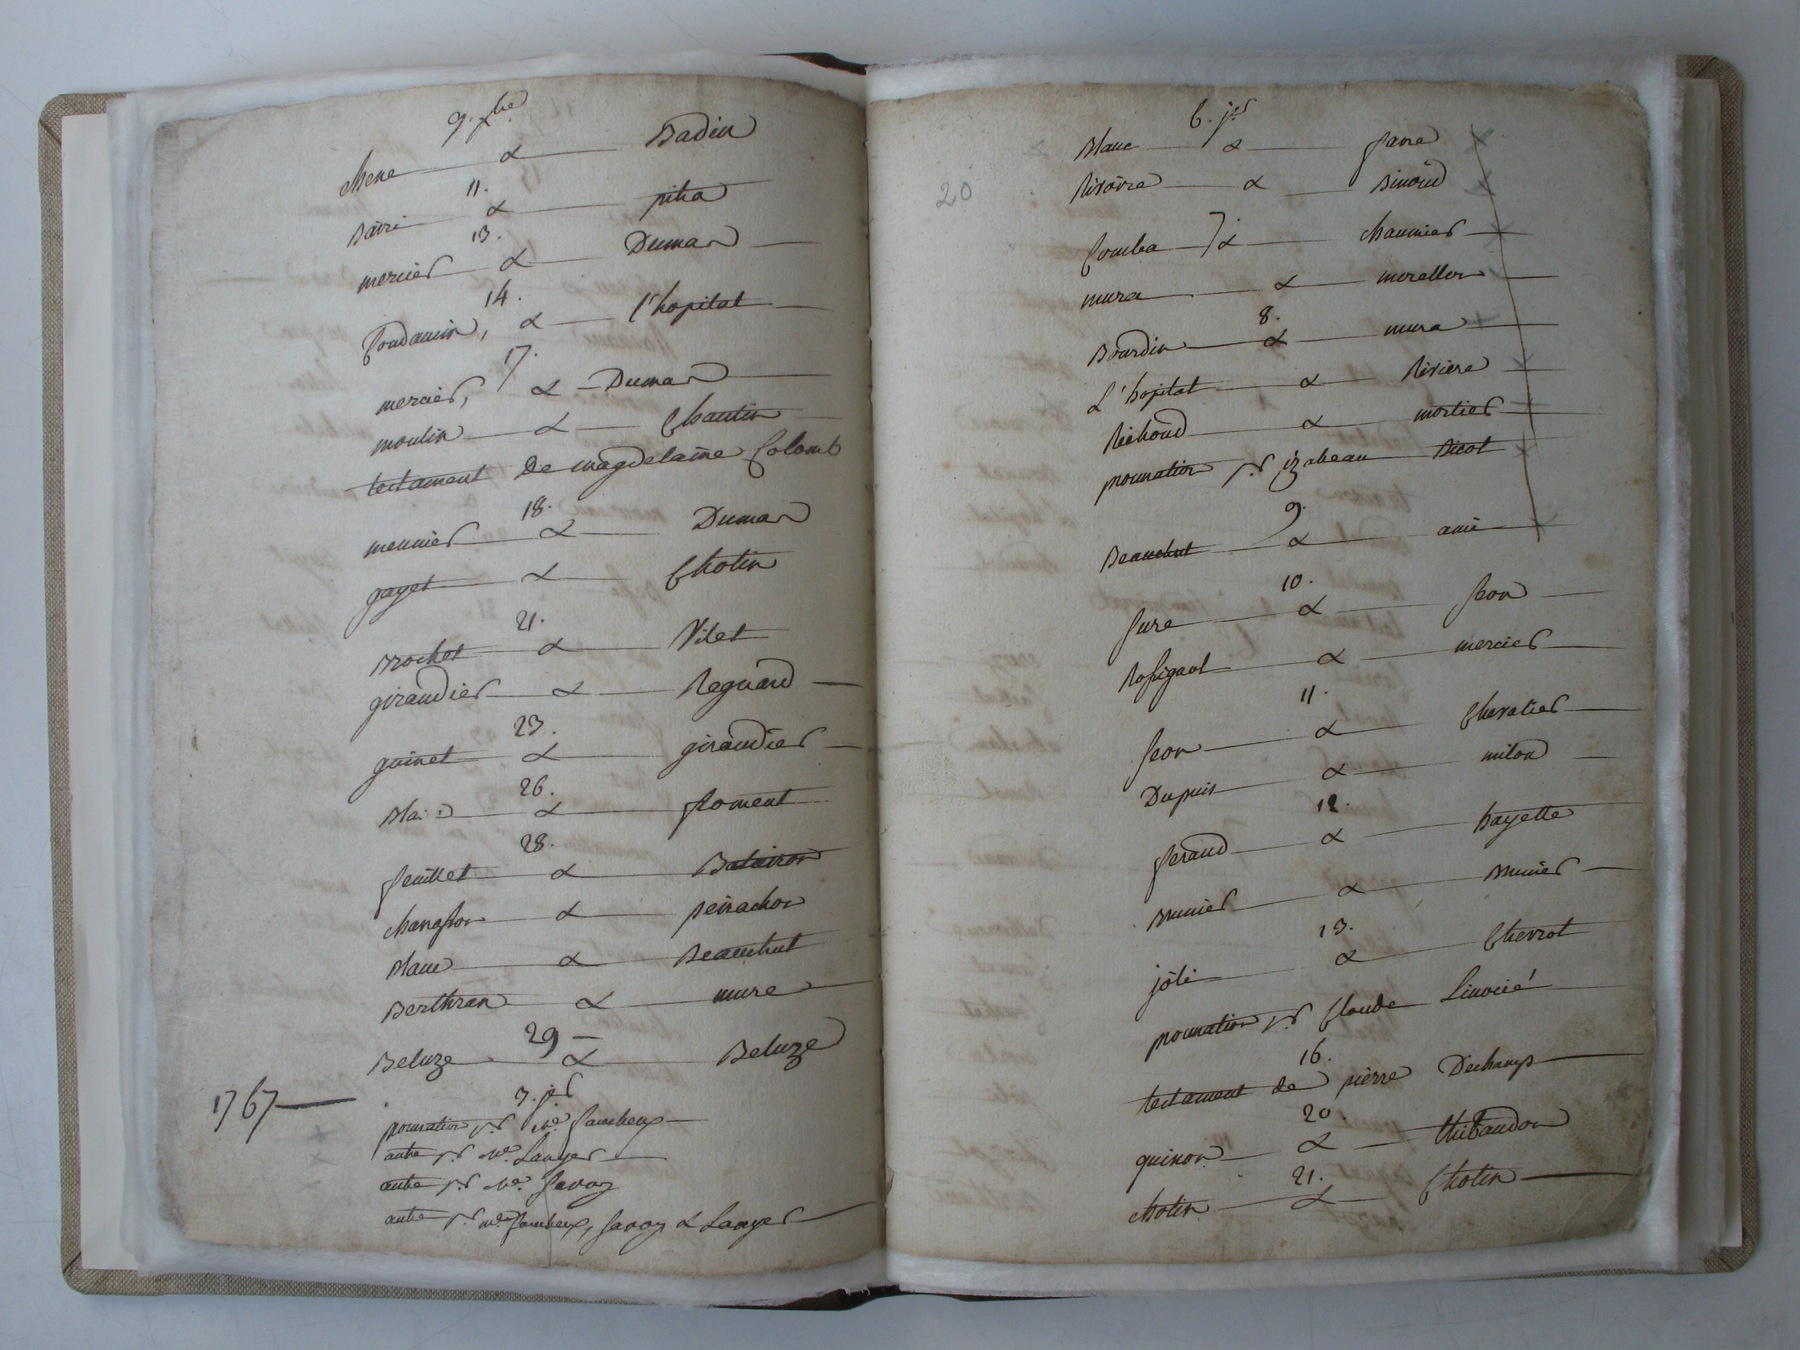 9. xbre
chene & Badin
11.
Bairi & pitra
13.
mercier & Dumas
14.
Condamin, & l'hopital
17.
mercier, & Dumas
moulin & Chautin
testament de magdelaine Colomb
18.
meunier & Dumas
gayet & Chotin
21.
Brochot & Vilet
giraudier & Regnard
23.
guinet & giraudier
26.
& floment
28.
feuillet & Balairon
& peirachon
Blanc & Beauchut
Berthran & mure
29
Beluze & Beluze
1767
3. jer
procuration pr
autre pr Me Lauyer
autre pr Me Savoy
autre pr Savoy & Lauyer
20
6. jer
Blanc & favre
Rivoire & Binoud
7.
Comba & chaumier
mura & morellon
8.
Bourdin & mura
L'hopital & Riviere
Richoud & mortier
procuration pr izabeau Bicot
9.
Beauchut & amé
10.
fure & feon
Rossignol & mercier
11.
feon & Chevalier
Dupuis & milon
12.
feraud & hayette
Brunier & Brunier
13.
joli & Chevrot
procuration pr Claude
16.
testament de pierre Dechamps
20.
guinon & thibaudon
21.
chotin & Chotin